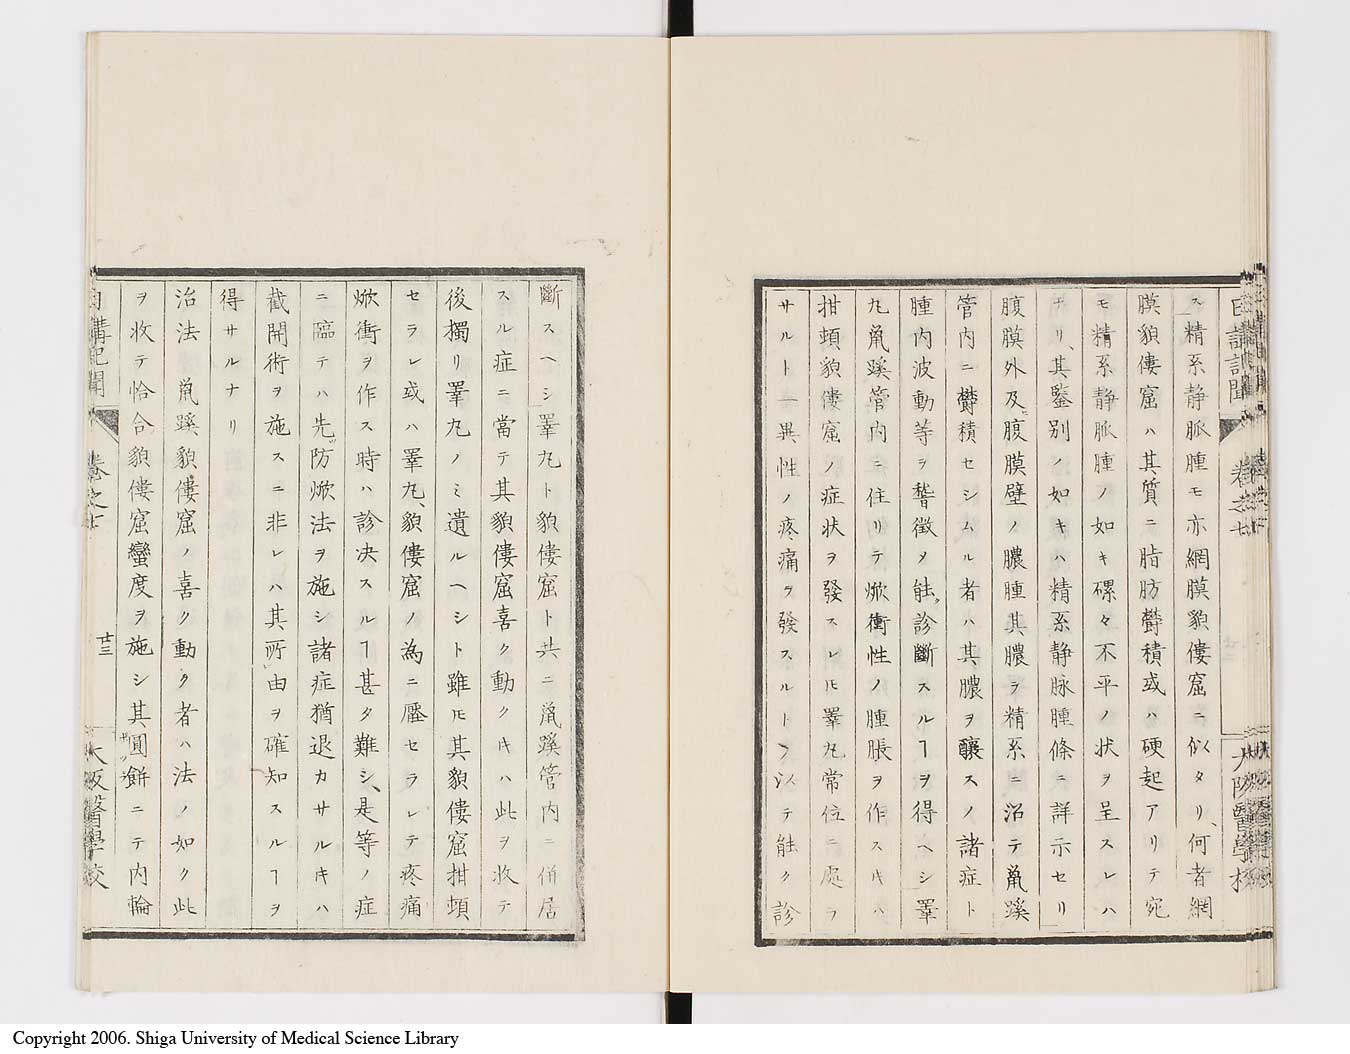 日講記聞 卷之七 大阪醫學校
ス精系静脈腫モ亦網膜貌僂窟ニ似タリ、何者網
膜貌僂窟ハ其質ニ脂肪欝積或ハ硬起アリテ宛
モ精系静脈腫ノ如キ磥々不平ノ状ヲ呈スレハ
ナリ、其鑒別ノ如キハ精系静脉腫條ニ詳示セリ
腹膜外及ヒ腹膜壁ノ膿腫其膿ヲ精系ニ沿テ鼠蹊
管内ニ欝積セシムル者ハ其膿ヲ釀スノ諸症ト
腫内波動等ヲ詧徴メ能ク診斷スルヿヲ得ヘシ睪
丸鼠蹊管内ニ住リテ焮衝性ノ腫脹ヲ作スキハ
拑頓貌僂窟ノ症状ヲ發スレ𪜈睪丸常位ニ處ラ
サルト一異性ノ疼痛ヲ發スルトヲ以テ能ク診
斷スヘシ睪丸ト貌僂窟ト共ニ鼠蹊管内ニ併居
スル症ニ當テ其貌僂窟喜ク動クキハ此ヲ收テ
後獨リ睪丸ノミ遺ルヘシト雖𪜈其貌僂窟拑頓
セラレ或ハ睪丸、貌僂窟ノ為ニ壓セラレテ疼痛
焮衝ヲ作ス時ハ診决スルヿ甚タ難シ、是等ノ症
ニ臨テハ先ツ防焮法ヲ施シ諸症猶退カサルキハ
截開術ヲ施スニ非レハ其所由ヲ確知スルヿヲ
得サルナリ
治法 鼠蹊貌僂窟ノ喜ク動ク者ハ法ノ如ク此
ヲ收テ恰合貌僂窟蠻度ヲ施シ其圓餅ニテ内輪
日講記聞 卷之七 廿三 大阪醫學校
Copyright 2006. Shiga University of Medical Science Library